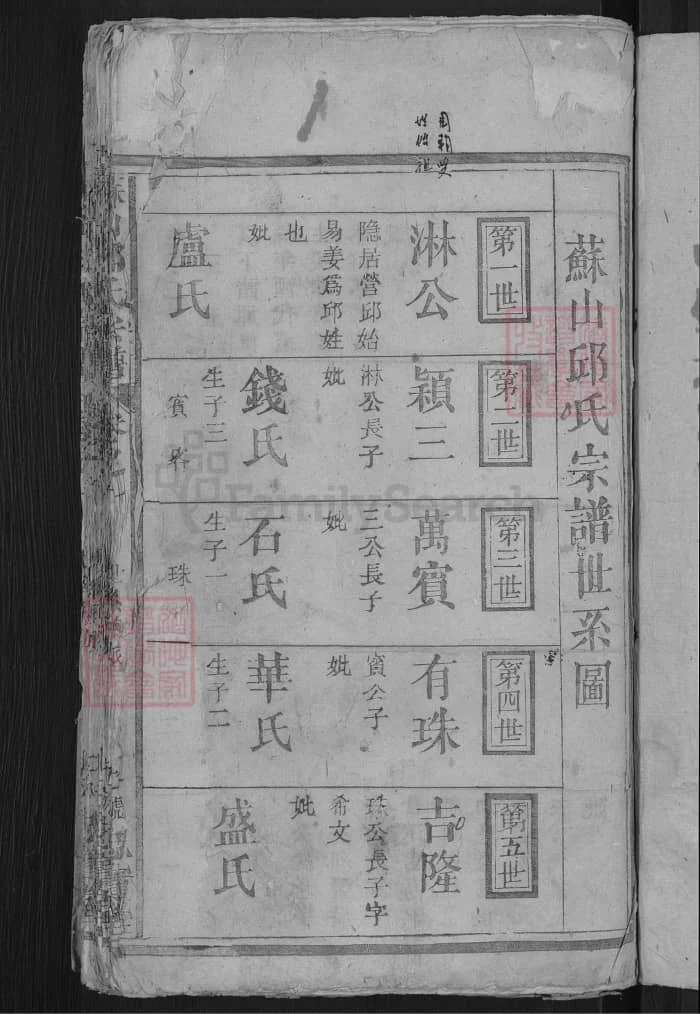 蘇山邱氏宗譜世系圖
第一世
淋公
隐居營邱始
易姜爲邱姓
也
妣
盧氏
第二世
穎三
淋公長子
妣
錢氏
生子三
賓
第三世
萬賓
三公長子
妣
石氏
生子一
珠
第四世
有珠
賓公子
妣
華氏
生子二
第五世
吉隆
珠公長子字
希文
妣
盛氏
FamilySearch